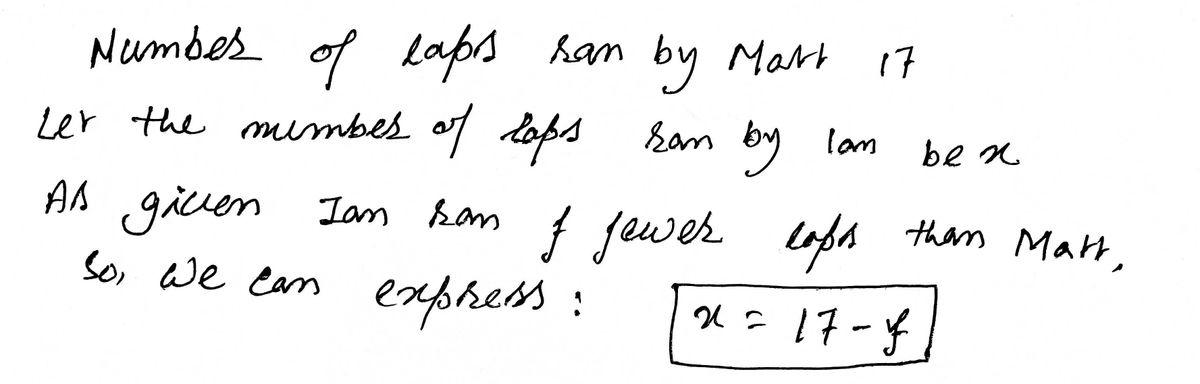 Number of laps ran by Matt 17
Let the number of laps ran by Ian be x
As given Ian ran f fewer laps than Matt,
So, We can express : x = 17 - f